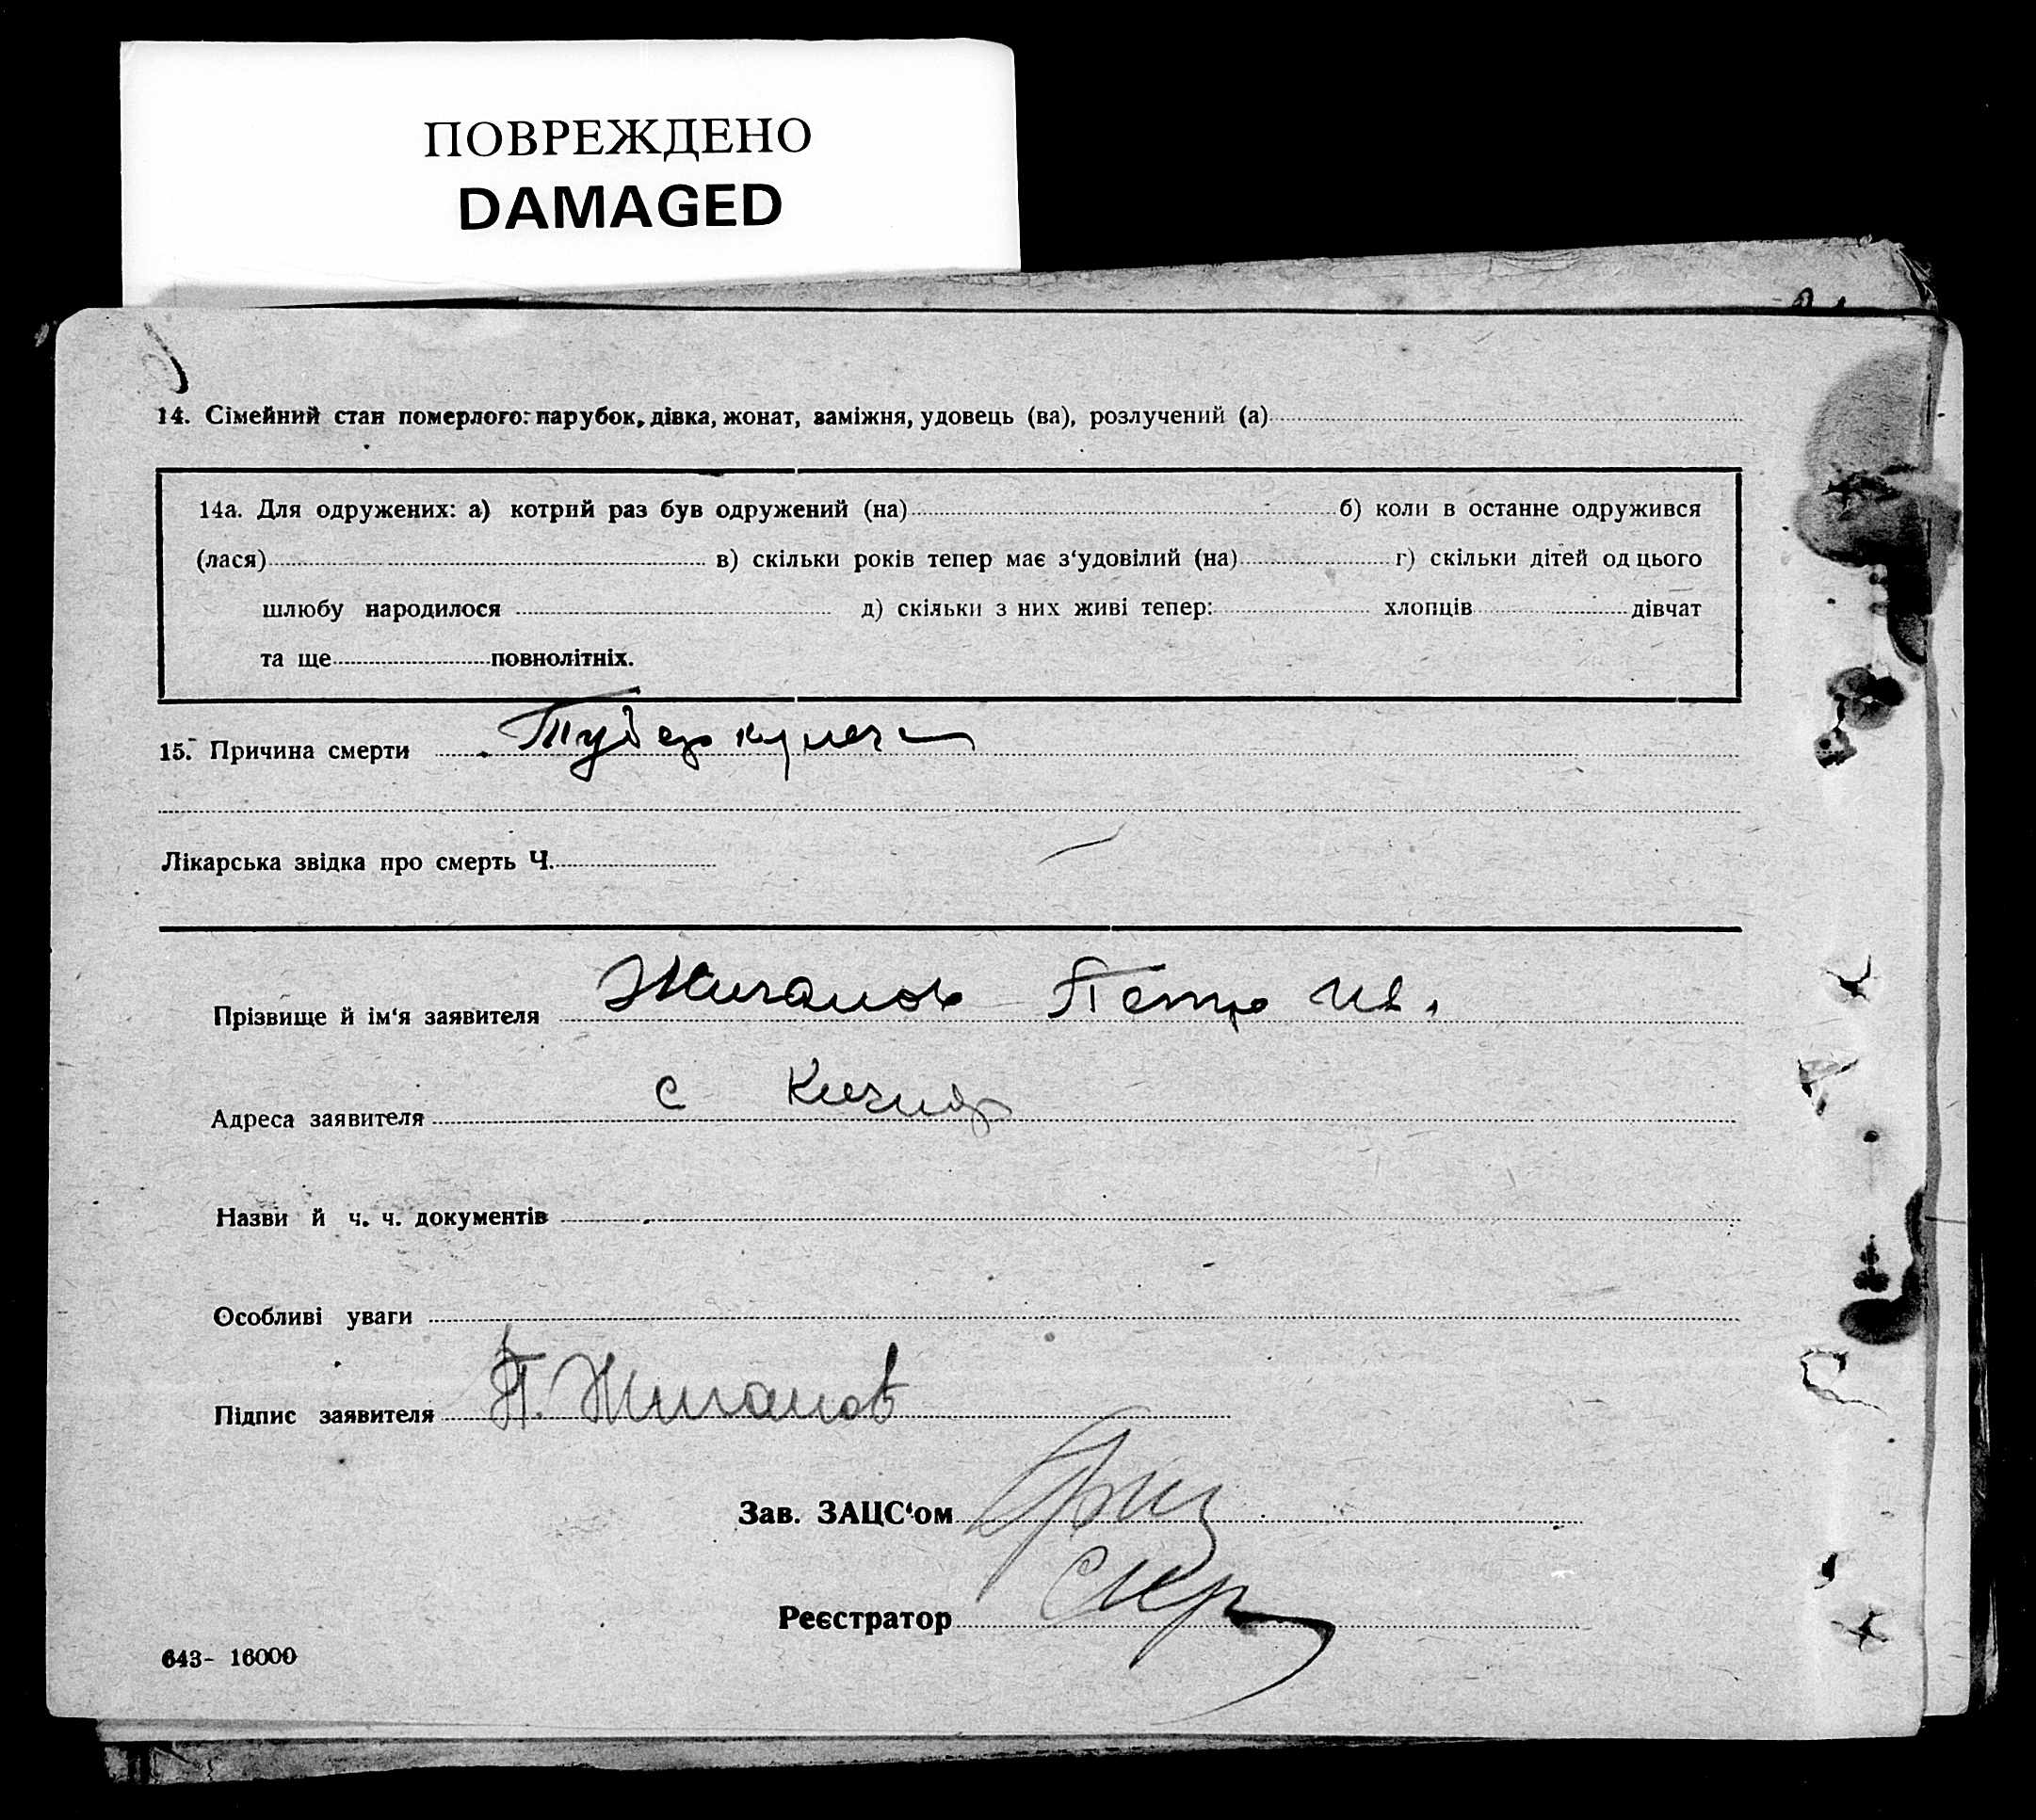 ПОВРЕЖДЕНО
DAMAGED
14. Сімейний стан померлого: парубок, дівка, жонат, заміжня, удовець (ва), розлучений (а)
14а. Для одружених: а) котрий раз був одружений (на) б) коли в останне одружився
(лася) в) скільки років тепер має з‘удовілий (на) г) скільки дітей од цього
шлюбу народилося д) скільки з них живі тепер: хлопців дівчат
та ще повнолітніх.
15. Причина смерти Туберкулез
Лікарська звідка про смерть Ч.
Прізвище й ім‘я заявителя Жиганов Петр Ив.
Адреса заявителя с
Назви й ч. ч. документів
Особливі уваги
Підпис заявителя П. Жиганов
Зав. ЗАЦС‘ом
Реєстратор
643- 16000